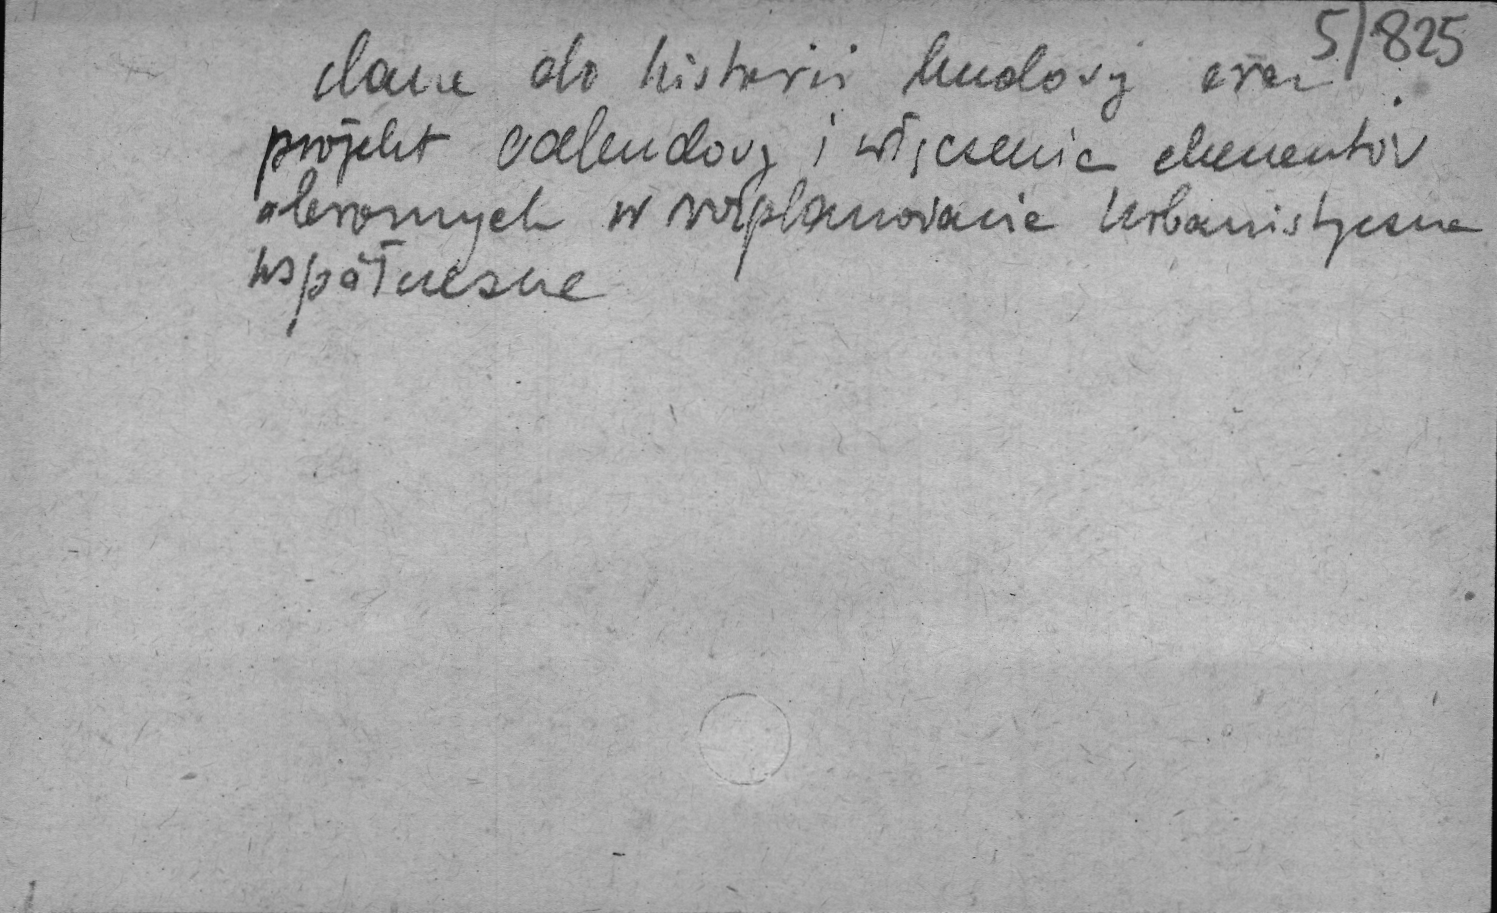 5/825
dane do historii budowy oraz
projekt odbudowy i włączenia elementów
obronnych w rozplanowanie urbanistyczne
współczesne